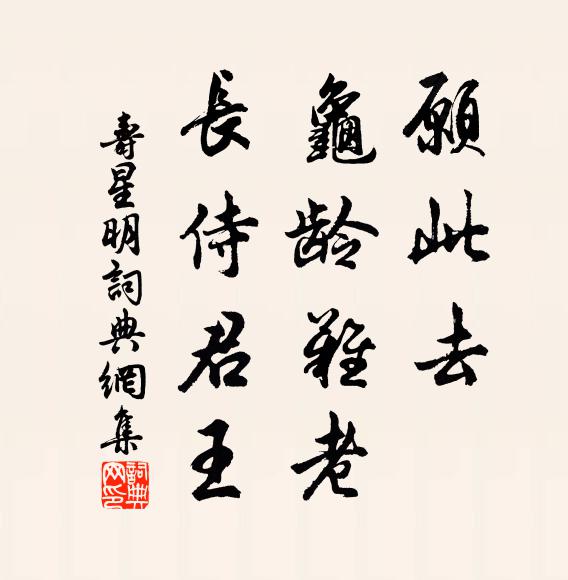 願此去
龜齡難老
長侍君王
壽星明詞典網集
詞典网印